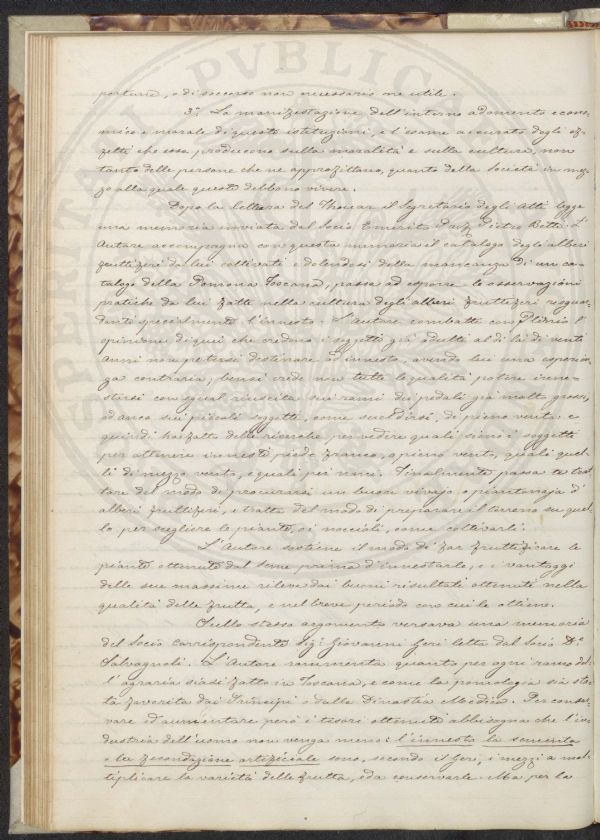 portune, o di soccorso non necessario ne utile.
3º. La manifestazione dell'interno andamento econo-
mico e morale di questi istituzioni, e l'esame accurato degli ef-
fetti che esse producono sulla moralità e sulla cultura, non
tanto delle persone che ne approfittano, quanto della Società in mez-
zo alla quale questi debbono vivere.
Dopo la lettura del Thouar il Segretario degli Atti legge
una memoria inviata dal Socio Emerito Pietro Betti. L'
Autore accompagna con questa memoria il catalogo degli alberi
fruttiferi da lui coltivati e dolendosi della mancanza di un ca-
talogo della Pomona Toscana, passa ad esporre le osservazioni
pratiche da lui fatte nella cultura degli alberi fruttiferi riguar-
danti specialmente l'innesto. L'Autore combatte con Plinio l'
opinione di quei che credono i soggetti già adulti al di là di venti
anni non potersi destinare ad innesto, avendo lui una esperien-
za contraria; bensì crede non tutte le qualità potere inne-
starsi con egual riuscita sui rami dei pedali già molto grossi,
ad anco sui piccoli soggetti, come suol dirsi, di pieno vento; e
quindi ha fatto delle ricerche per vedere quali siano i soggetti
per ottenere innesti piede franco, o pieno vento, quali quel-
li di mezzo vento, e quali pei nani. Finalmente passa a trat
tare del modo di procurarsi un buon vivajo o piantonaja d'
alberi fruttiferi, e tratta del modo di preparare il terreno su quel
lo per scegliere le piante, o i noccioli, come coltivarli.
L'Autore sostiene il modo di far fruttificare le
piante ottenute dal seme prima d'innestarle, e i vantaggi
delle sue massime rileva dai buoni risultati ottenuti nella
qualità delle frutta, e nel breve periodo con cui le ottiene.
Sullo stesso argomento versava una memoria
del Socio Corrispondente Sigr. Giovanni Geri letta dal Socio Dr.
Salvagnoli. L'Autore rammenta quanto per ogni ramo del
l'agraria siasi fatto in Toscana, e come la pomologia sia sta-
ta favorita dai Principi o dalla Dinastia Medicea. Per conser-
vare ed aumentare però i tesori ottenuti abbisogna che l'in-
dustria dell'uomo non venga meno: l'innesto la sementa
e la fecondazione artificiale sono, secondo il Geri, i mezzi a mol
tiplicare la varietà delle frutta, od a conservarle. Ma per la
SPERITATI PVBLICA